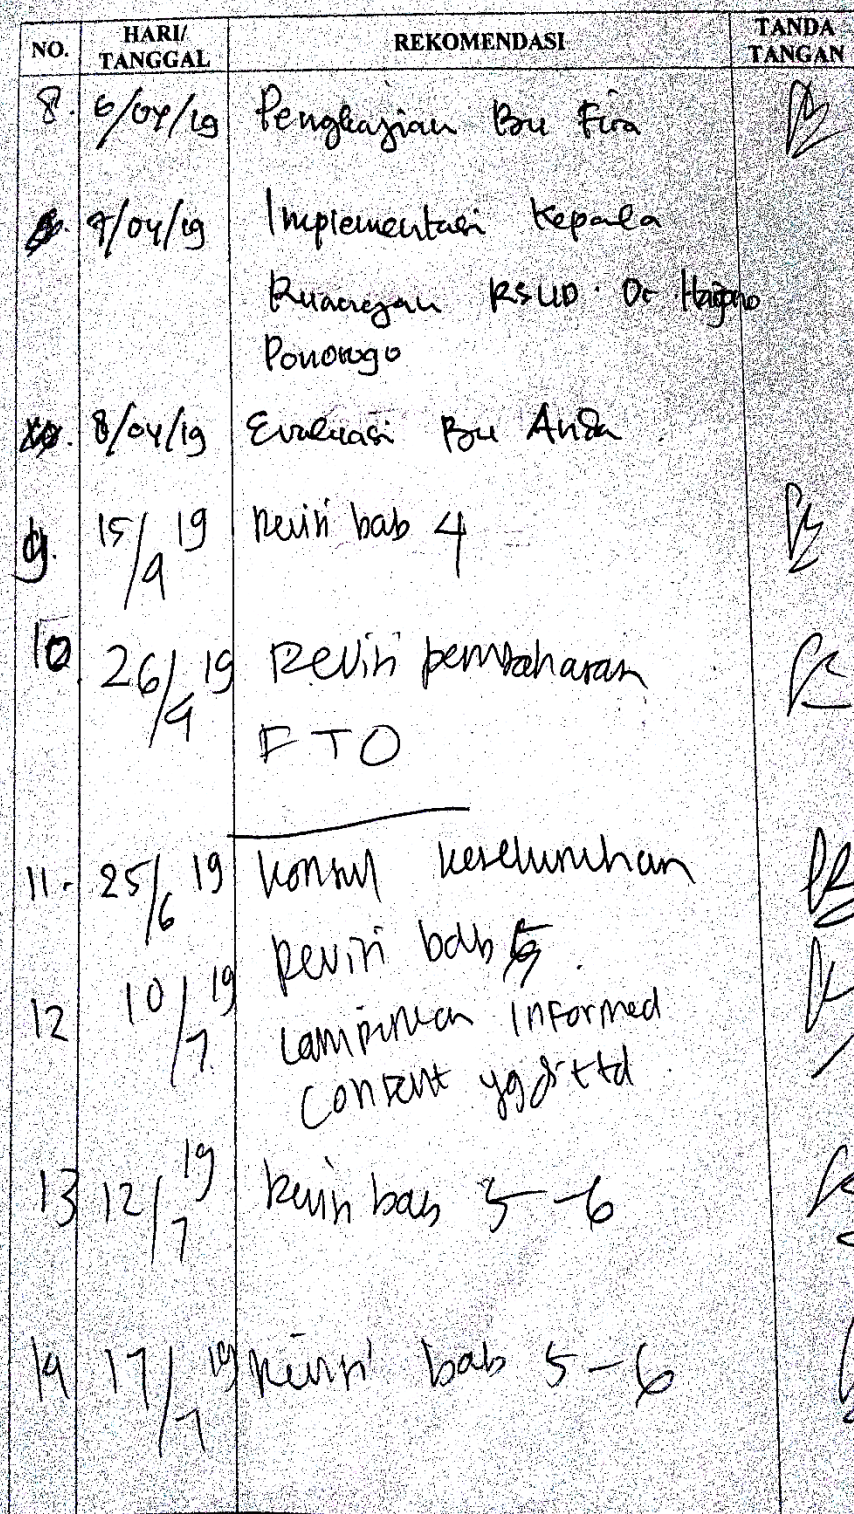 NO. HARI/ TANGGAL REKOMENDASI TANDA TANGAN
8. 6/04/19 Pengkajian Bu Fira
7/04/19 Implementasi Kepala
Ruangan RSUD. Dr Harjono
Ponorogo
8/04/19 Evaluasi Bu
9. 15/4 19 Revisi bab 4
10 26/4 19 Revisi pembahasan
FTO
11. 25/6 19 Konsul keseluruhan
Revisi bab
12 10/7 19 Lampirkan Informed
Consent yg di ttd
13 12/7 19 Revisi bab 5-6
14 17/7 19 Revisi bab 5-6